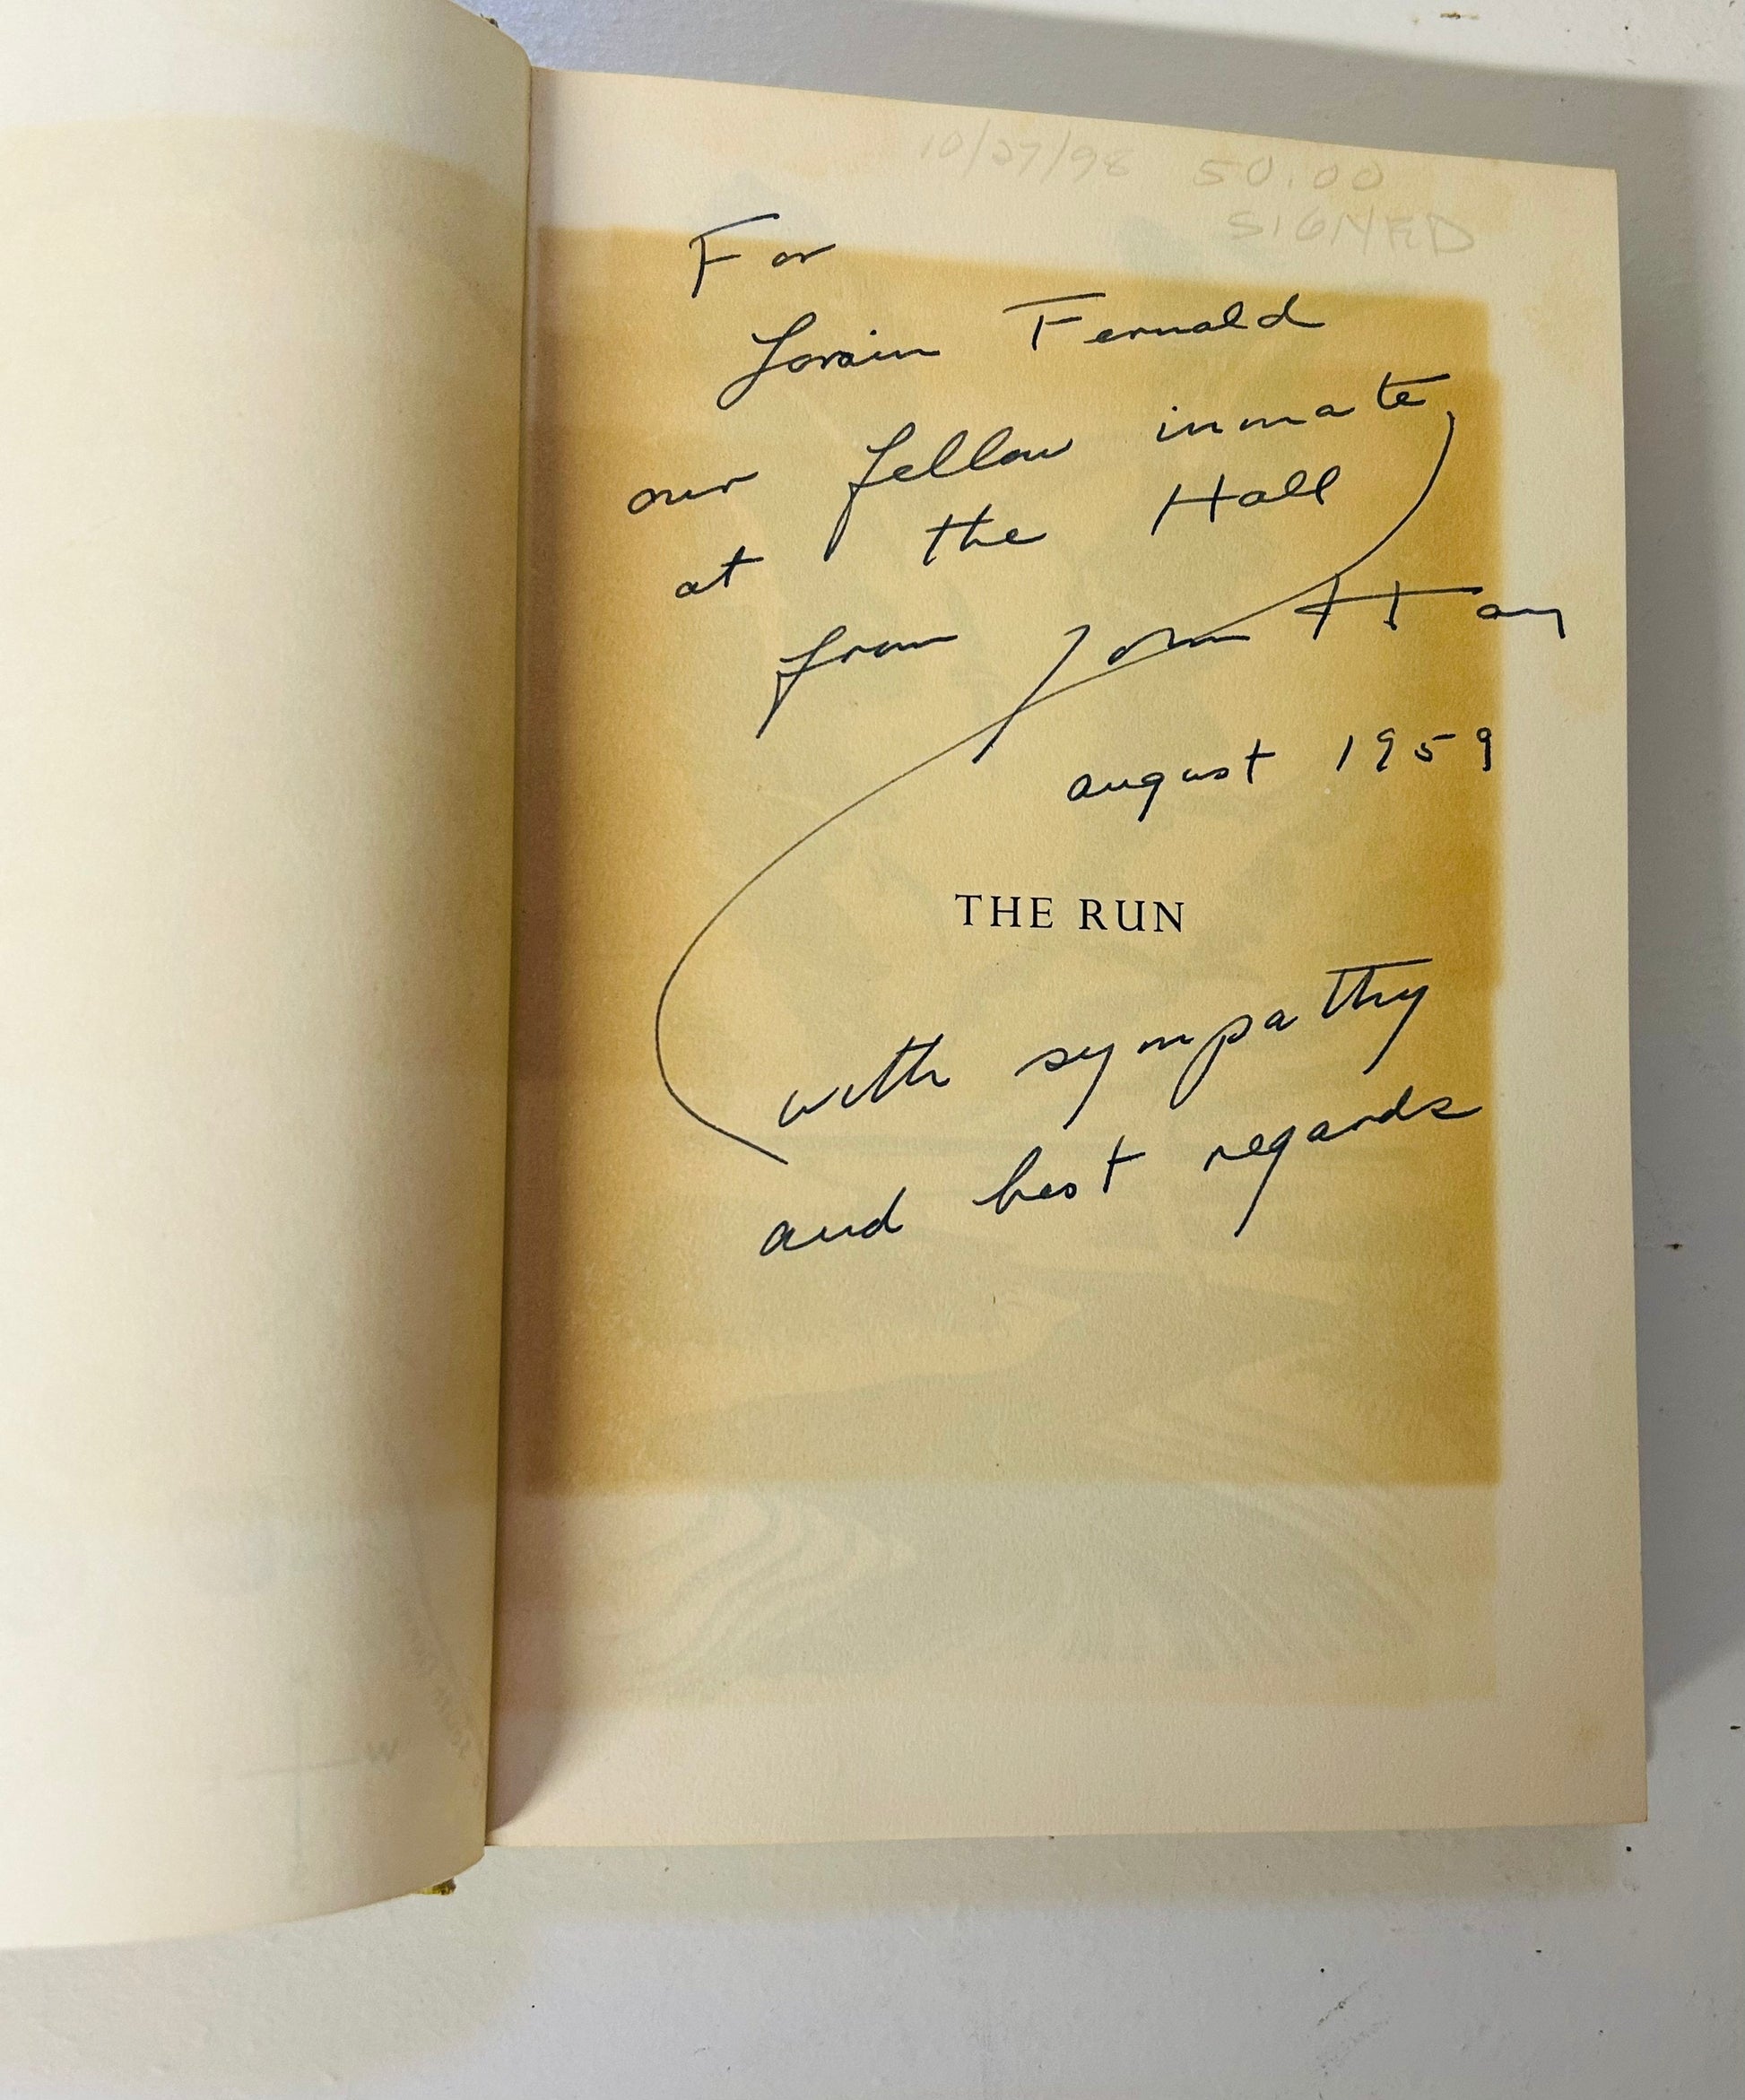 10/27/98 50.00
SIGNED
For
Lorain Fernald
our fellow inmate,
at the Hall
from John Hay
august 1959
THE RUN
with sympathy
and best regards